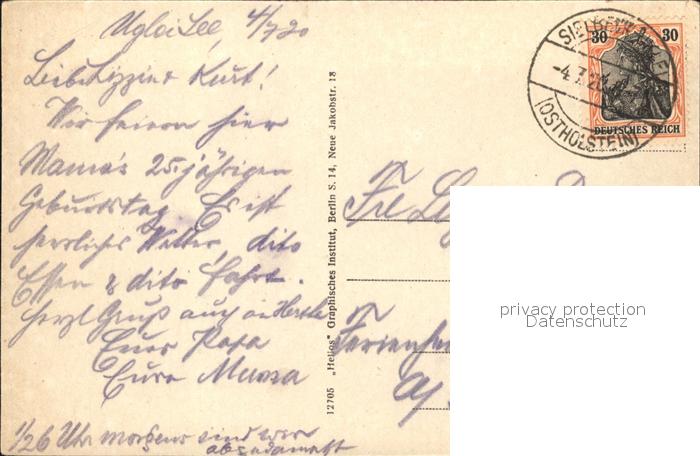 Uglei See, 4/7 20
Liebe Lizzi u Kurt!
Wir feiern hier
Mama's 25 jährigen
Geburtstag. Es ist
herrliches Wetter, dito
Essen & dito Fahrt.
Herzl Gruß auch an Hertha
Euer Papa
Eure Mama
1/26 Uhr morgens sind wir
abgedampft
12705 „Helios" Graphisches Institut, Berlin S. 14, Neue Jakobstr. 18
-4.7.20
(OSTHOLSTEIN)
30 30
DEUTSCHES REICH
Frl
privacy protection
Datenschutz